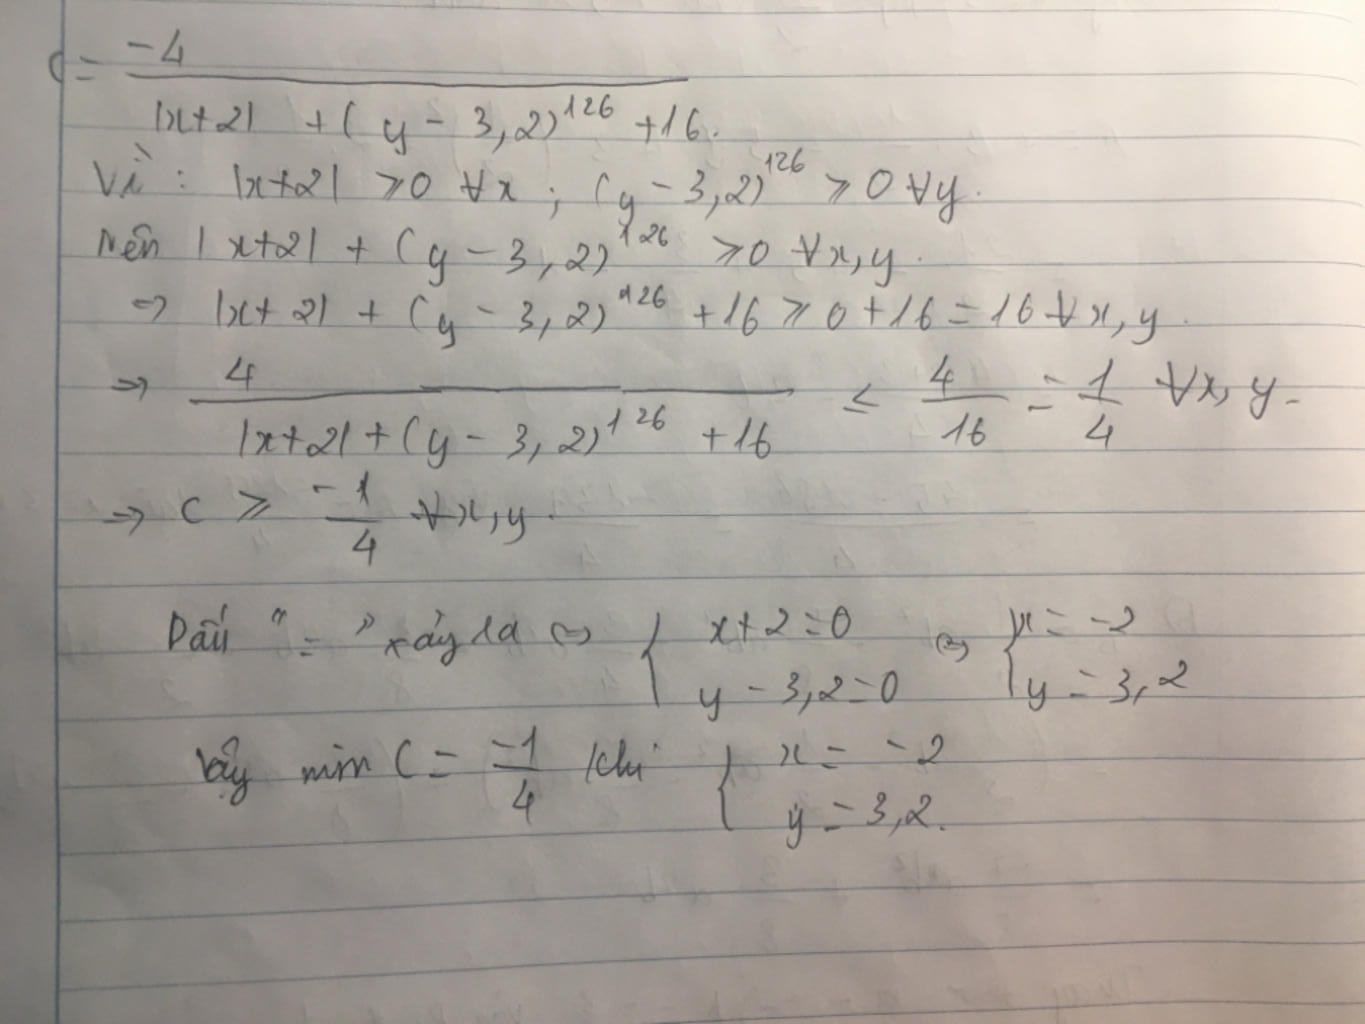 C = -4 / |x+2| + (y - 3,2)^126 + 16.
Vì : |x+2| ⩾ 0 ∀x ; (y - 3,2)^126 ⩾ 0 ∀y.
Nên |x+2| + (y - 3,2)^126 ⩾ 0 ∀x,y.
⇒ |x+2| + (y - 3,2)^126 + 16 ⩾ 0 + 16 = 16 ∀x,y.
⇒ 4 / |x+2| + (y - 3,2)^126 + 16 ≤ 4/16 = 1/4 ∀x,y.
⇒ C ⩾ -1/4 ∀x,y.
Dấu "=" xảy ra ⇔ { x+2=0 y - 3,2=0 ⇔ { x = -2 y = 3,2
Vậy min C = -1/4 khi { x = -2 y = 3,2.